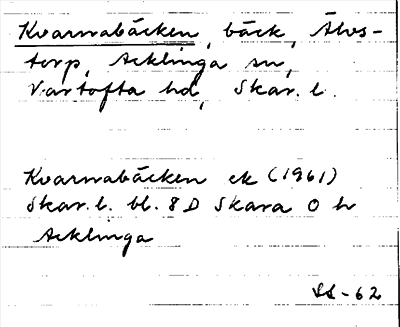 Kvarnabäcken, bäck, Älvs-
torp, Acklinga sn,
Vartofta hd, Skar. l.
Kvarnabäcken ek (1961)
Skar. l. bl. 8 D Skara 0 h
Acklinga
SL-62